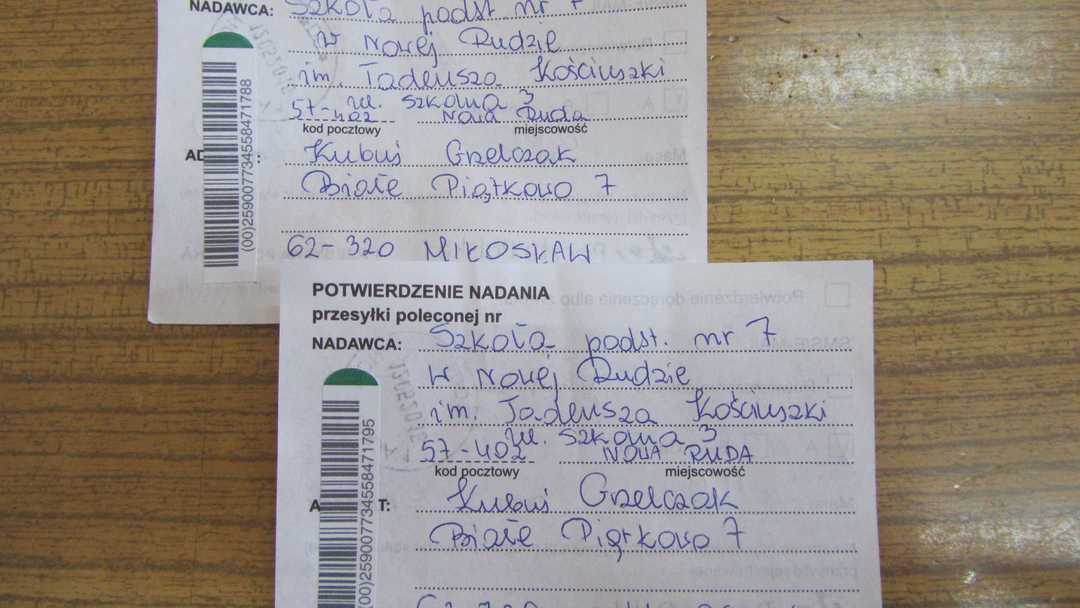 NADAWCA: Szkoła podst nr 7
w Nowej Rudzie
im. Tadeusza Kościuszki
ul. Szkolna 3
57-402 NOWA Ruda
kod pocztowy miejscowość
Kubuś Grzelczak
Białe Piątkowo 7
62-320 MIŁOSŁAW
(00)259007734558471788
POTWIERDZENIE NADANIA
przesyłki poleconej nr
NADAWCA: Szkoła podst. nr 7
w Nowej Rudzie
im. Tadeusza Kościuszki
ul. Szkolna 3
57-402 NOWA RUDA
kod pocztowy miejscowość
Kubuś Grzelczak
Białe Piątkowo 7
(00)259007734558471795